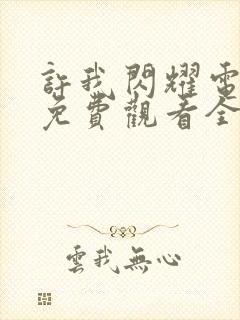 許我閃耀電
免費觀看全
雲我無心